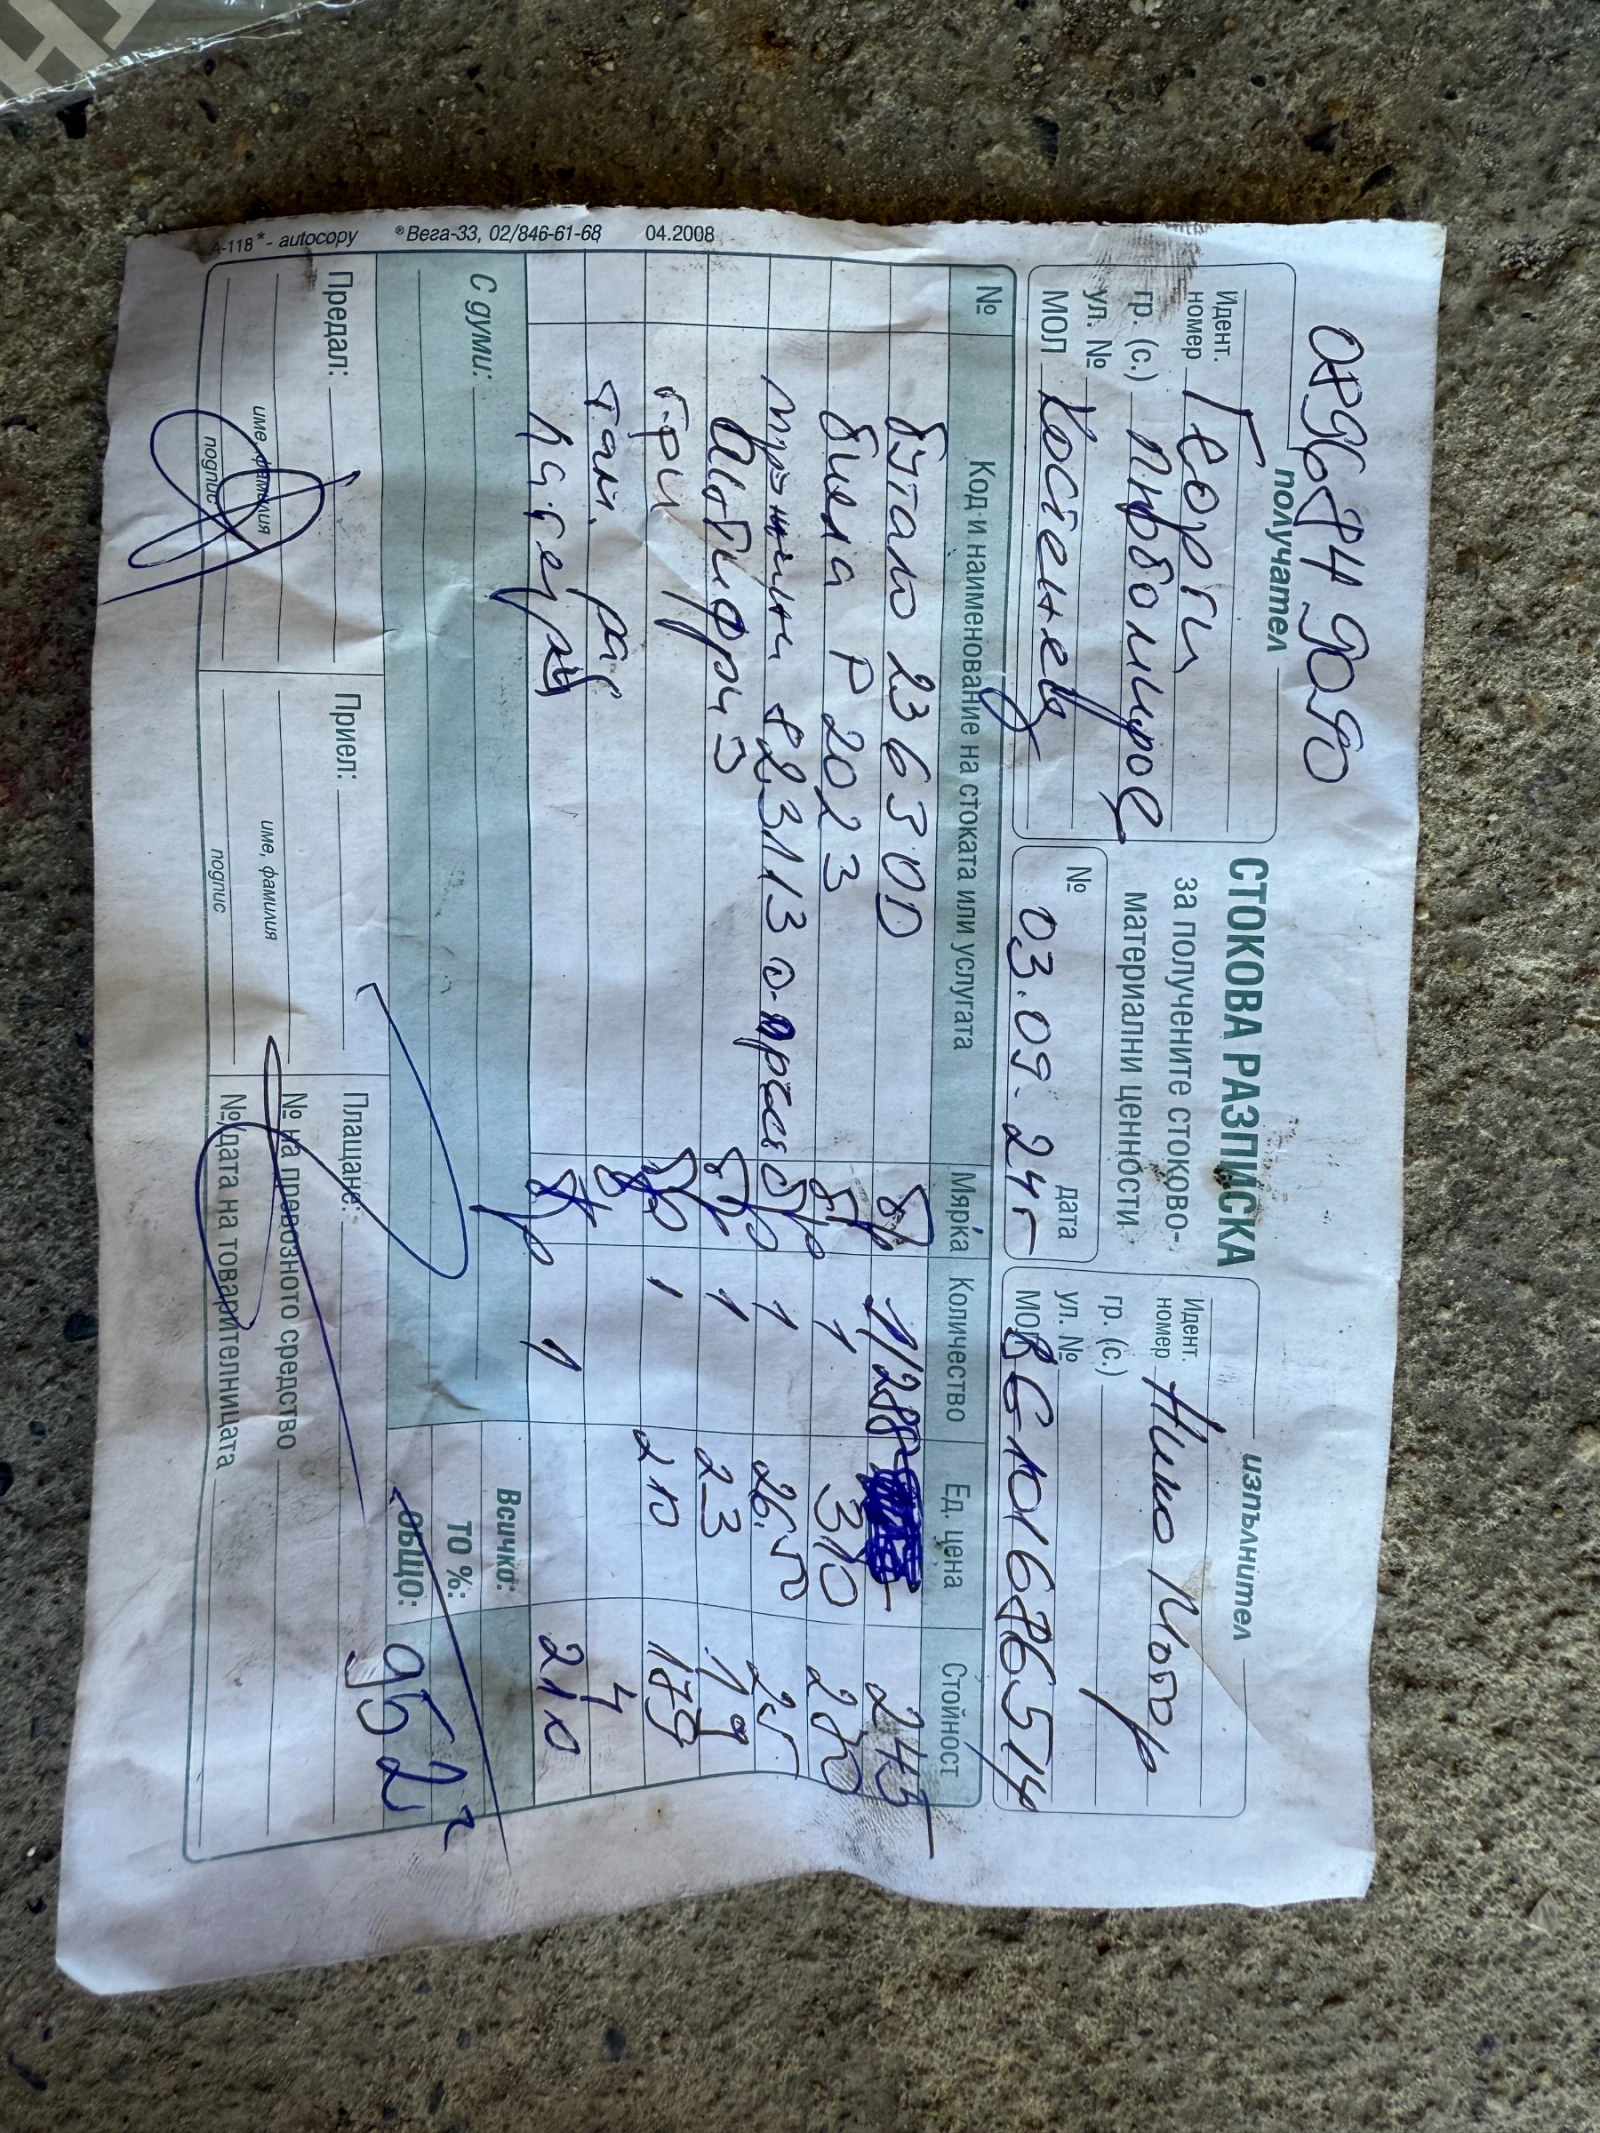 0896849090
получател
СТОКОВА РАЗПИСКА
за получените стоково-
материални ценности
изпълнител
Идент. номер Георги
гр. (с.)
ул. №
МОЛ Костенец
№ дата
03.09.24г
Идент. номер
гр. (с.)
ул. №
МОЛ BG101686514
№ Код и наименование на стоката или услугата Мярка Количество Ед. цена Стойност
бутало 23630D бр 1/288 245
биела P2023 бр 1 310 270
82.3113 бр 1 26.50 25
Антифриз бр 1 23 19
бр 1 210 179
бр 4
бр 1 210
С думи:
Всичко:
ТО %:
ОБЩО: 952
Предал:
име, фамилия
подпис
Приел:
име, фамилия
подпис
Плащане:
№ на превозното средство
№/дата на товарителницата
А-118* - autocopy ®Вега-33, 02/846-61-68 04.2008